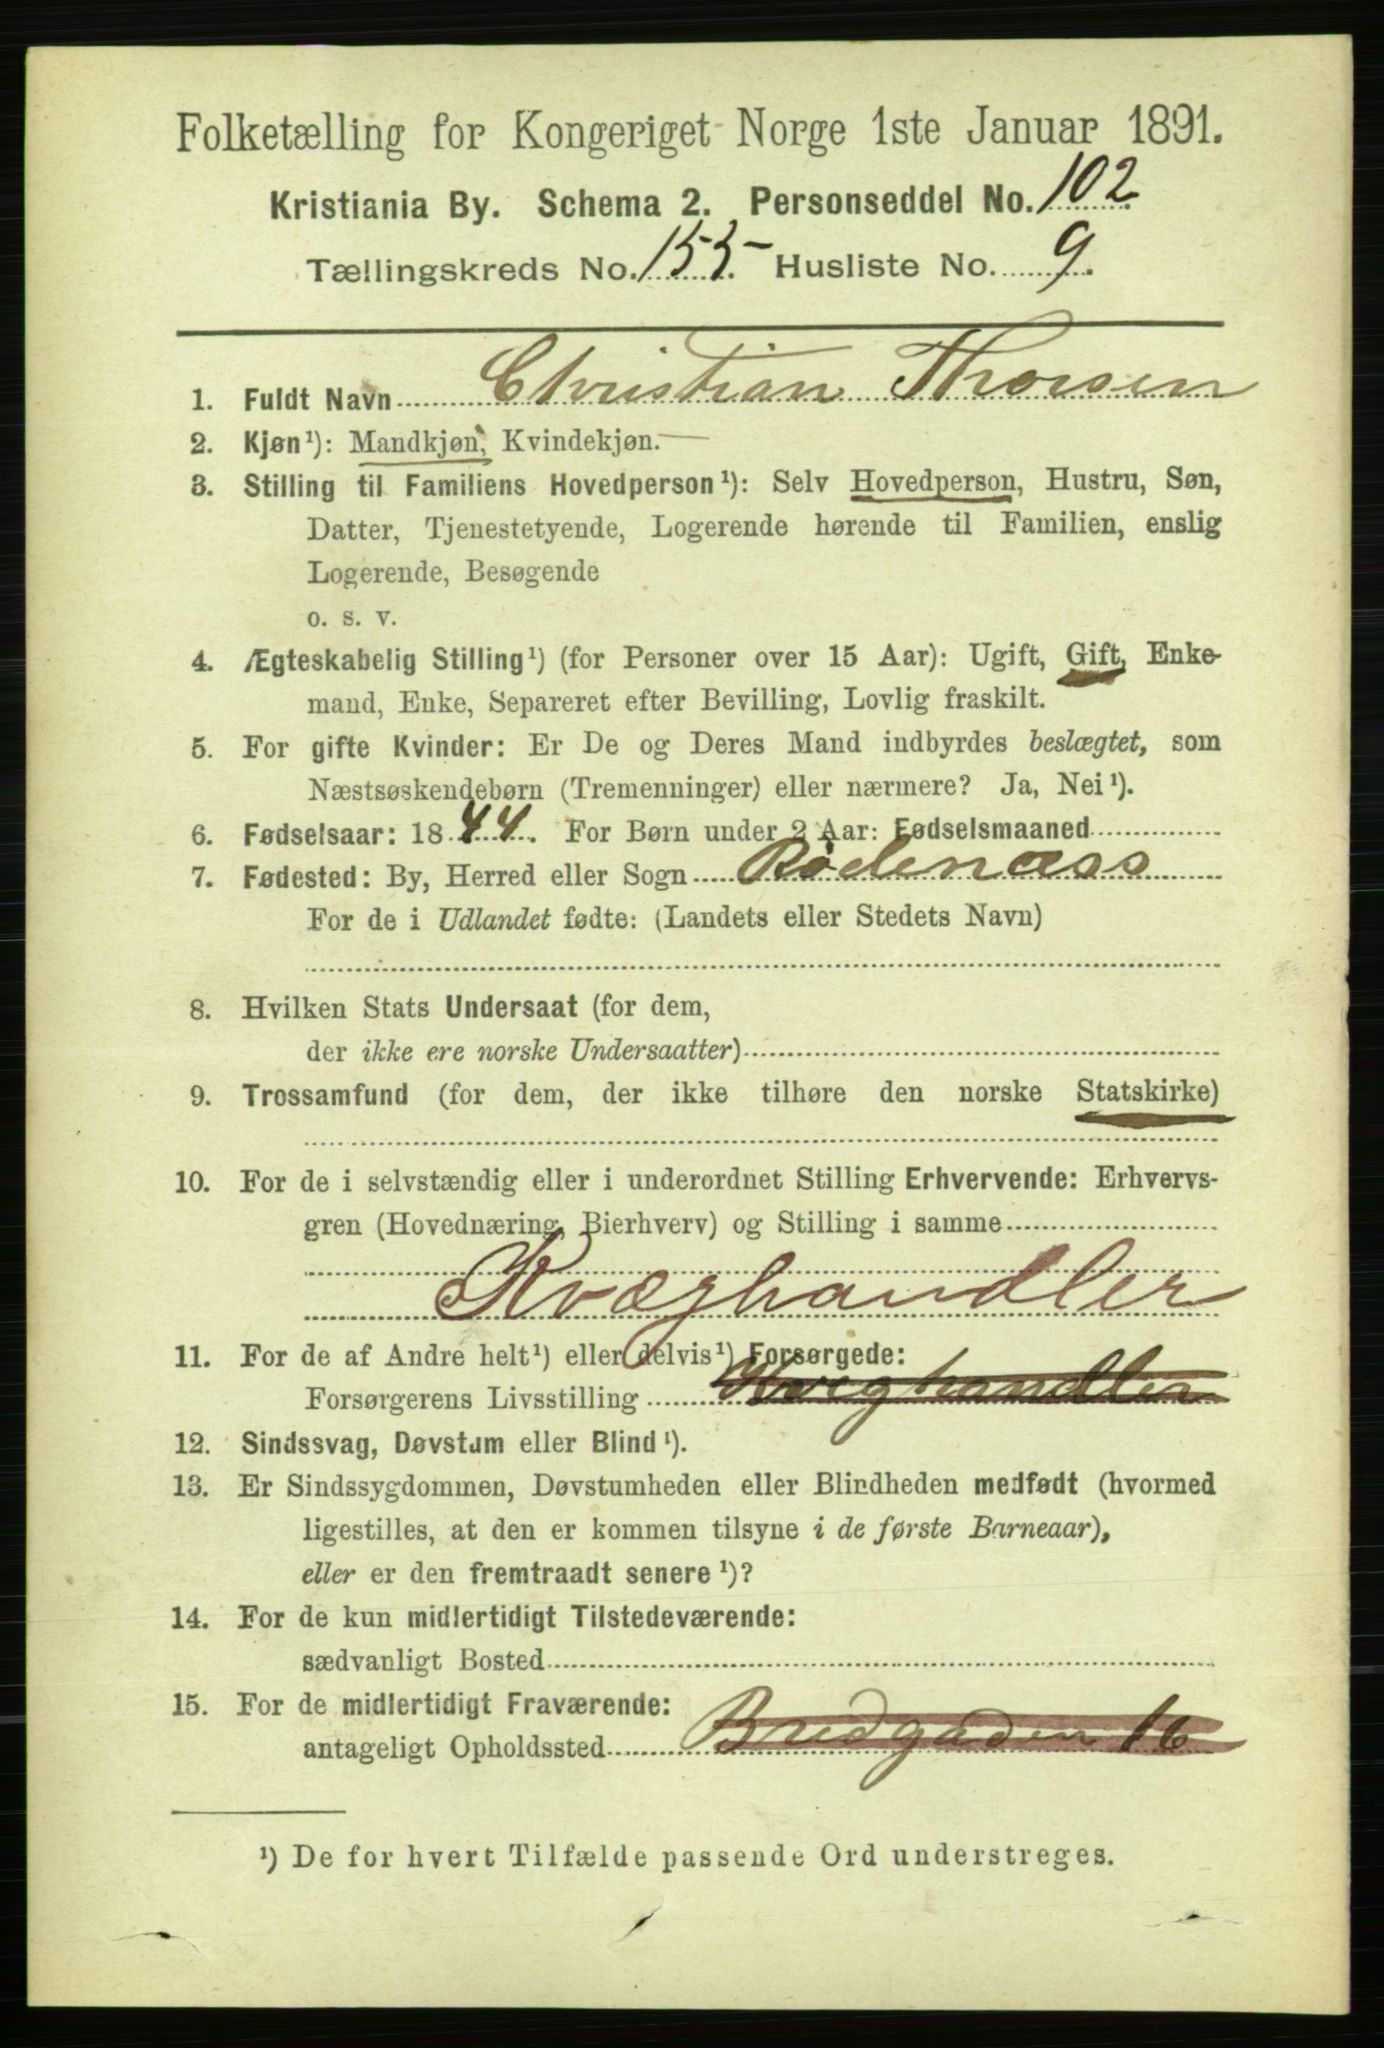 Folketælling for Kongeriget Norge 1ste Januar 1891.
Kristiania By. Schema 2. Personseddel No. 102
Tællingskreds No. 155. Husliste No. 9.
1. Fuldt Navn Christian Thorsen
2. Kjøn¹): Mandkjøn, Kvindekjøn.
3. Stilling til Familiens Hovedperson¹): Selv Hovedperson, Hustru, Søn,
Datter, Tjenestetyende, Logerende hørende til Familien, enslig
Logerende, Besøgende
o. s. v.
4. Ægteskabelig Stilling¹) (for Personer over 15 Aar): Ugift, Gift, Enke-
mand, Enke, Separeret efter Bevilling, Lovlig fraskilt.
5. For gifte Kvinder: Er De og Deres Mand indbyrdes beslægtet, som
Næstsøskendebørn (Tremenninger) eller nærmere? Ja, Nei¹).
6. Fødselsaar: 1844. For Børn under 2 Aar: Fødselsmaaned
7. Fødested: By, Herred eller Sogn Rødenæss
For de i Udlandet fødte: (Landets eller Stedets Navn)
8. Hvilken Stats Undersaat (for dem,
der ikke ere norske Undersaatter)
9. Trossamfund (for dem, der ikke tilhøre den norske Statskirke)
10. For de i selvstændig eller i underordnet Stilling Erhvervende: Erhvervs-
gren (Hovednæring, Bierhverv) og Stilling i samme
Kvæghandler
11. For de af Andre helt¹) eller delvis¹) Forsørgede:
Forsørgerens Livsstilling Kvæghandler
12. Sindssvag, Døvstum eller Blind¹).
13. Er Sindssygdommen, Døvstumheden eller Blindheden medfødt (hvormed
ligestilles, at den er kommen tilsyne i de første Barneaar),
eller er den fremtraadt senere¹)?
14. For de kun midlertidigt Tilstedeværende:
sædvanligt Bosted
15. For de midlertidigt Fraværende:
antageligt Opholdssted Bredgaden 16
¹) De for hvert Tilfælde passende Ord understreges.